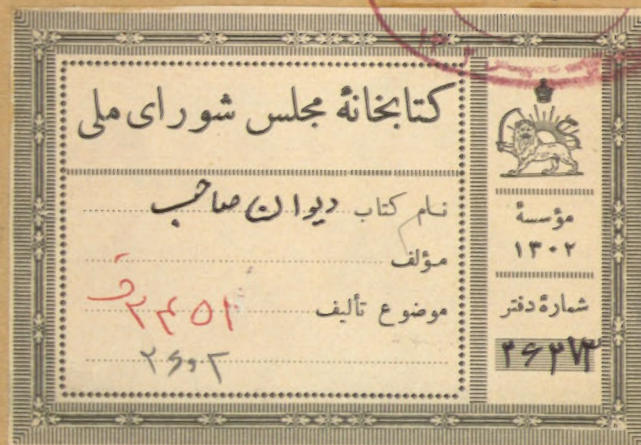 کتابخانهٔ مجلس شورای ملی
نام کتاب دیوان صاحب
مؤلف
موضوع تألیف
۲۴۵۱ ف
۲۶۰۲
مؤسسهٔ
۱۳۰۲
شمارهٔ دفتر